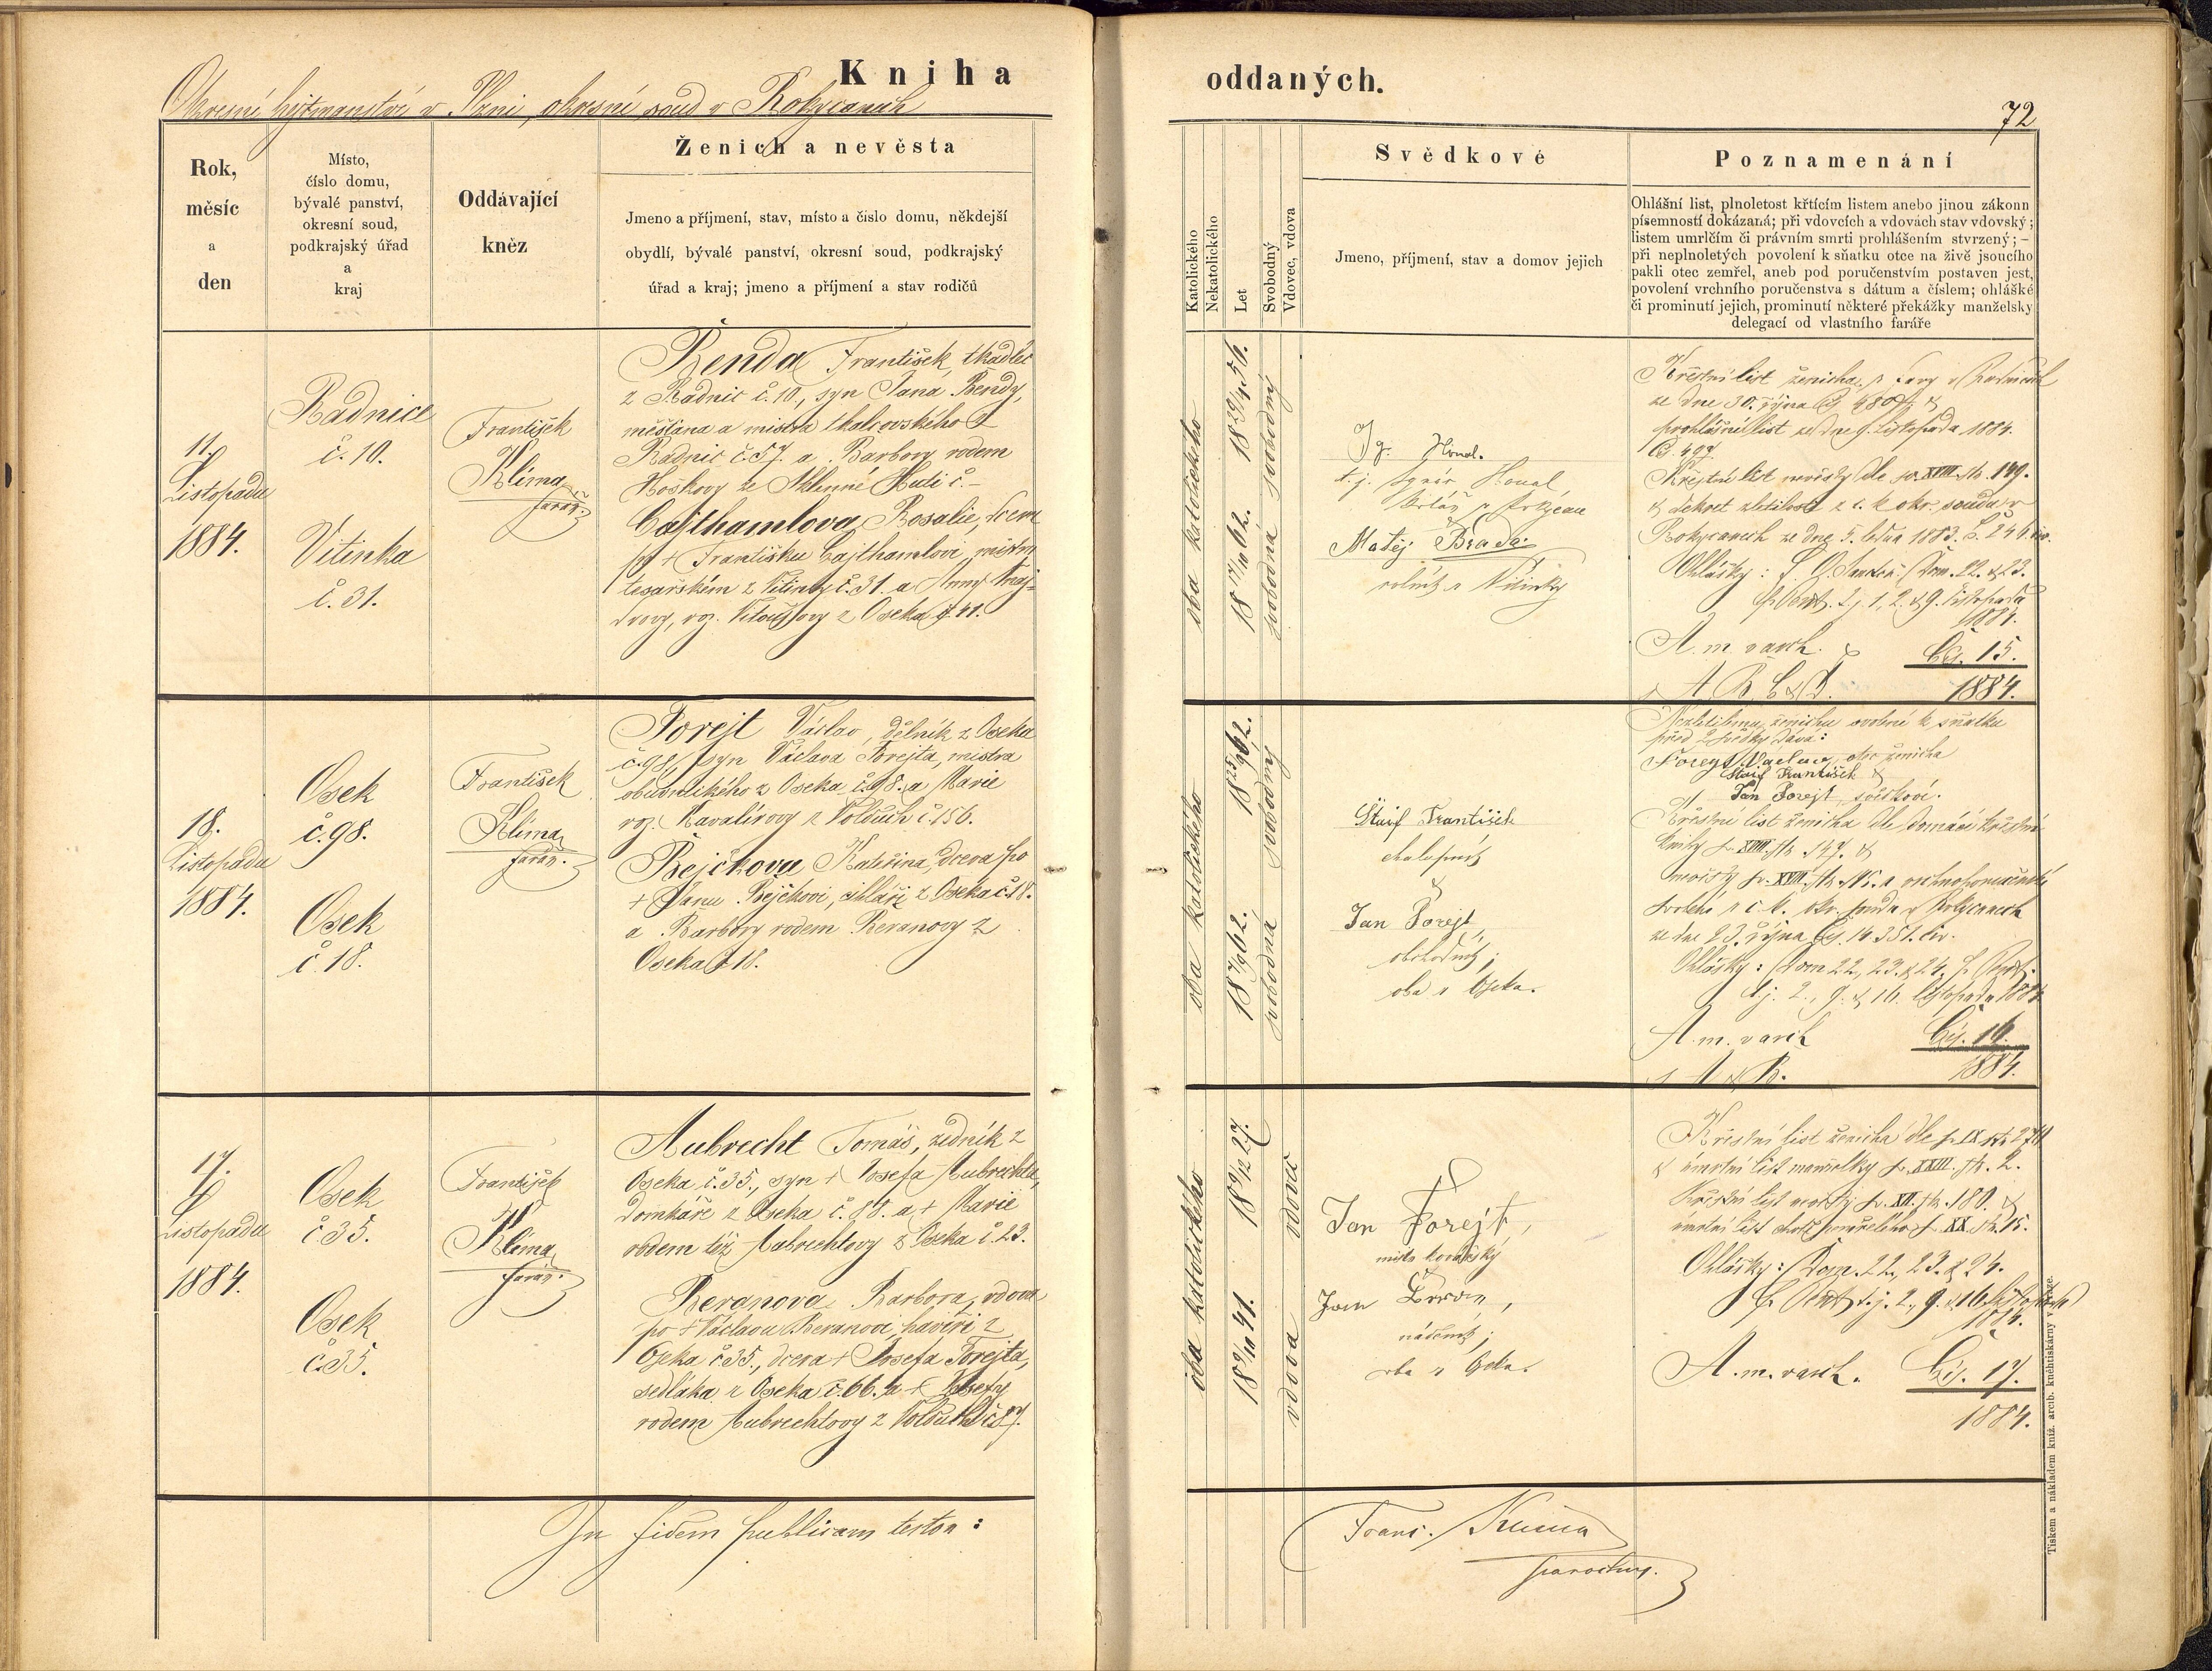 Kniha oddaných.
Okresní hejtmanství v Plzni, okresní soud v Rokycanech
72
Rok,
měsíc
a
den
Místo,
číslo domu,
bývalé panství,
okresní soud,
podkrajský úřad
a
kraj
Oddávající
kněz
Ženich a nevěsta
Jmeno a příjmení, stav, místo a číslo domu, někdejší
obydlí, bývalé panství, okresní soud, podkrajský
úřad a kraj; jmeno a příjmení a stav rodičů
Katolického
Nekatolického
Let
Svobodný
Vdovec, vdova
Svědkové
Jmeno, příjmení, stav a domov jejich
Poznamenání
Ohlášní list, plnoletost křtícím listem anebo jinou zákonn
písemností dokázaná; při vdovcích a vdovách stav vdovský;
listem umrlčím či právním smrti prohlášením stvrzený; –
při neplnoletých povolení k sňatku otce na živě jsoucího
pakli otec zemřel, aneb pod poručenstvím postaven jest,
povolení vrchního poručenstva s dátum a číslem; ohlášké
či prominutí jejich, prominutí některé překážky manželsky
delegací od vlastního faráře
11.
Listopadu
1884.
Radnice
č. 10.
Vitinka
č. 31.
František
Klima
farář.
Benda František, tkadlec
z Radnic č. 10., syn Jana Bendy,
měšťana a mistra tkalcovského z
Radnic č. 57. a Barbory rodem
Hoškovy ze Sklenné Huti č –
Cajthamlova Rosalie, dcera
po + Františku Cajthamlovi, mistru
tesařském z Vitinky č. 31. a Anny
roz. z Oseka č. 41.
oba katolického
18 29/4 56.
18 17/10 62.
svobodný
svobodná
Ig. Houd.
t. j.
Matěj Brada
rolník z Vitinky
Křestní list ženicha z fary v Radnicích
ze dne 30. října
prohlášní list ze dne 9. Listopadu 1884.
Čj. 497.
Křestní list nevěsty dle sv. XVIII. str. 149.
& dekret zletilosti z c. k. okr. soudu v
Rokycanech ze dne 5. ledna 1883. Č. 246 civ.
Ohlášky: Dom. 22. & 23.
p. Pent. t. j. 1, 2. & 9. listopadu
1884.
A. m. vasch. &
A. B. C & D.
Čís. 15.
1884.
18.
Listopadu
1884.
Osek
č. 98.
Osek
č. 18.
František
Klima
farář.
Forejt Václav, dělník z Oseka
č. 98, syn Václava Forejta, mistra
obuvnického z Oseka č. 98. a Marie
roz. Kavalírovy z Volduch č. 156.
Rejčkova Kateřina, dcera po
+ Janu Rejčkovi, cihláři z Oseka č. 18.
a Barbory rodem Beranovy z
Oseka č 18.
oba katolického
18 25/9 62.
18 7/9 62.
svobodný
svobodná
Štaif František
chalupník
&
Jan Forejt,
obchodník;
oba z Oseka.
Nezletilému ženichu svolení k sňatku
před 2 svědky dává:
Foreyt Vaclav, otec ženicha
Štaif František &
Jan Forejt, svědkové.
Křestní list ženicha dle domácí křestní
knihy sv. XVIII. str. 147. &
nevěsty sv. XVIII.
svolení z c. k. okr. soudu v Rokycanech
ze dne 23. října Čís. 14.351. civ.
Ohlášky: Dom 22, 23. & 24. p. Pent.
t. j. 2., 9. & 16. listopadu 1884
A. m. vasch
A & B.
Čís. 16.
1884.
17.
Listopadu
1884.
Osek
č 35.
Osek
č. 35.
František
Klima
farář.
Aubrecht Tomáš, zedník z
Oseka č. 35., syn + Josefa Aubrechta,
domkáře z Oseka č. 88. a + Marie
rodem též Aubrechtovy z Oseka č. 23.
Beranova Barbora, vdova
po + Václavu Beranovi, havíři z
Oseka č 35., dcera + Josefa Forejta,
sedláka z Oseka č. 66. a + Josefy
rodem Aubrechtovy z Volduch č 87.
oba katolického
18 9/12 27.
18 9/10 41.
vdovec
vdova
Jan Forejt,
mistr kovářský
Jan
nádeník;
oba z Oseka.
Křestní list ženicha dle sv. IX str. 278
& úmrtní list manželky sv. XXIII. str. 2.
Křestní list nevěsty sv. XII. str. 180. &
úmrtní list sv. XX. str. 15.
Ohlášky: Dom. 22., 23. & 24.
p. Pent. t. j. 2., 9. & 16. listopadu
1884.
A. m. vasch.
Čís. 17.
1884.
In fidem publicam testor:
Franc. Klima
parochus.
Tiskem a nákladem kníž. arcib. knihtiskárny v Praze.